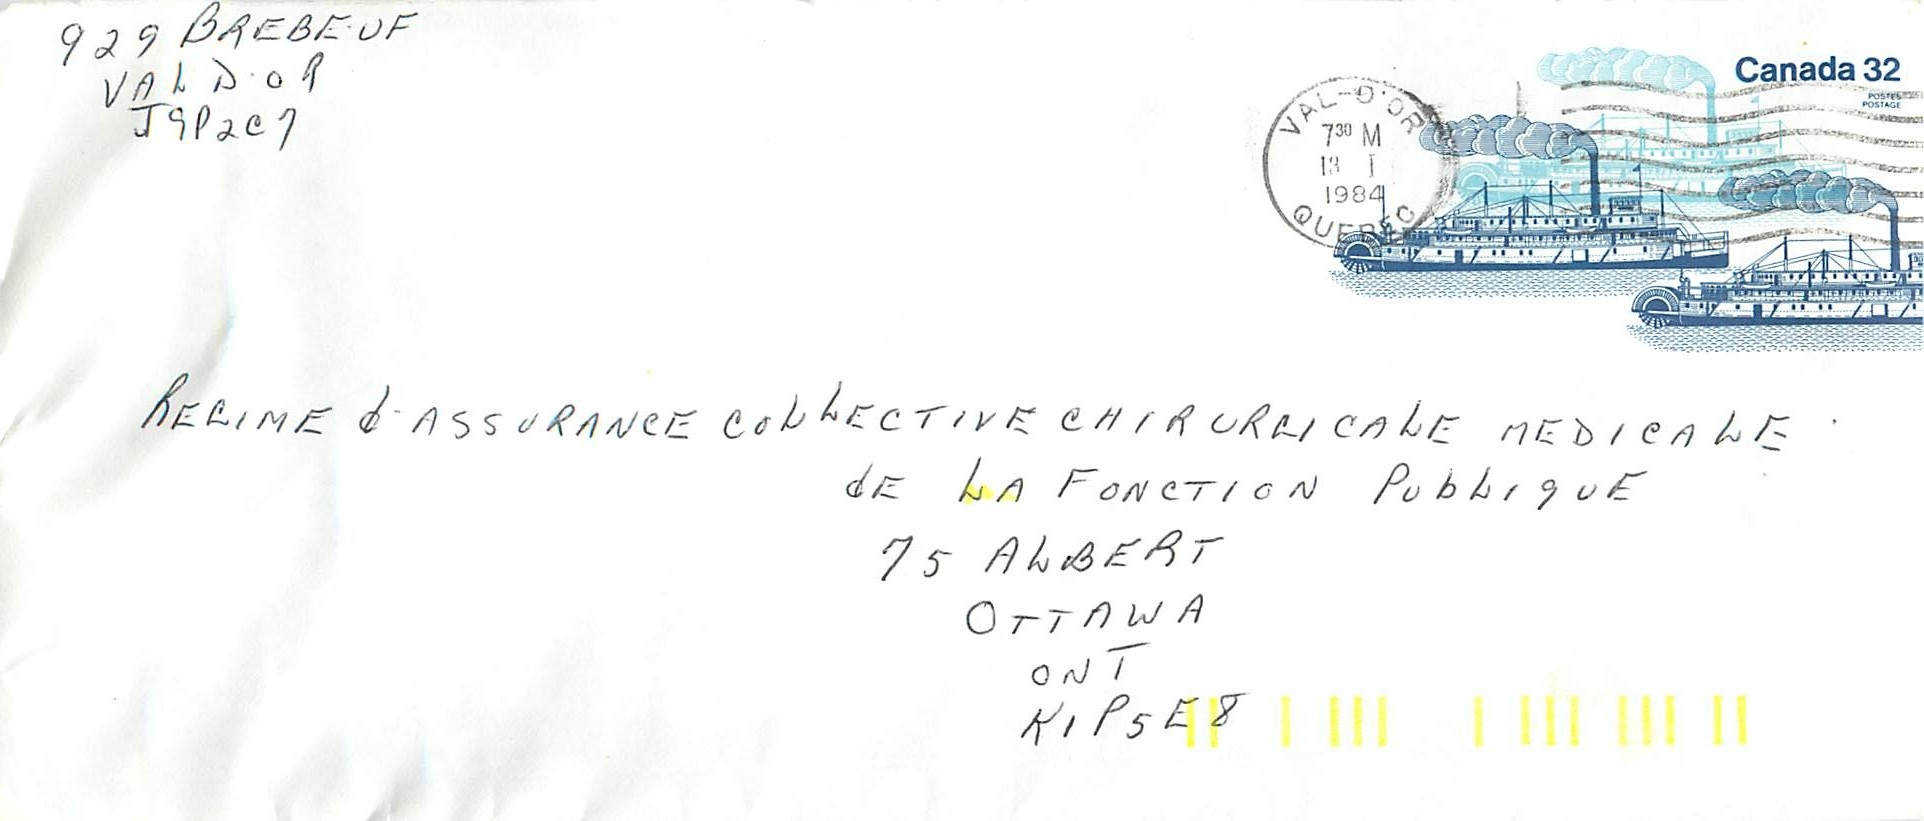 929 BREBEUF
VAL D'OR
J9P2C7
Canada 32
POSTES
POSTAGE
VAL-D'OR
7 30 M
13 I
1984
QUEBEC
REGIME d'ASSURANCE COLLECTIVE CHIRURGICALE MEDICALE
dE LA FONCTION PUbLIQUE
75 ALBERT
OTTAWA
ONT
K1P5E8